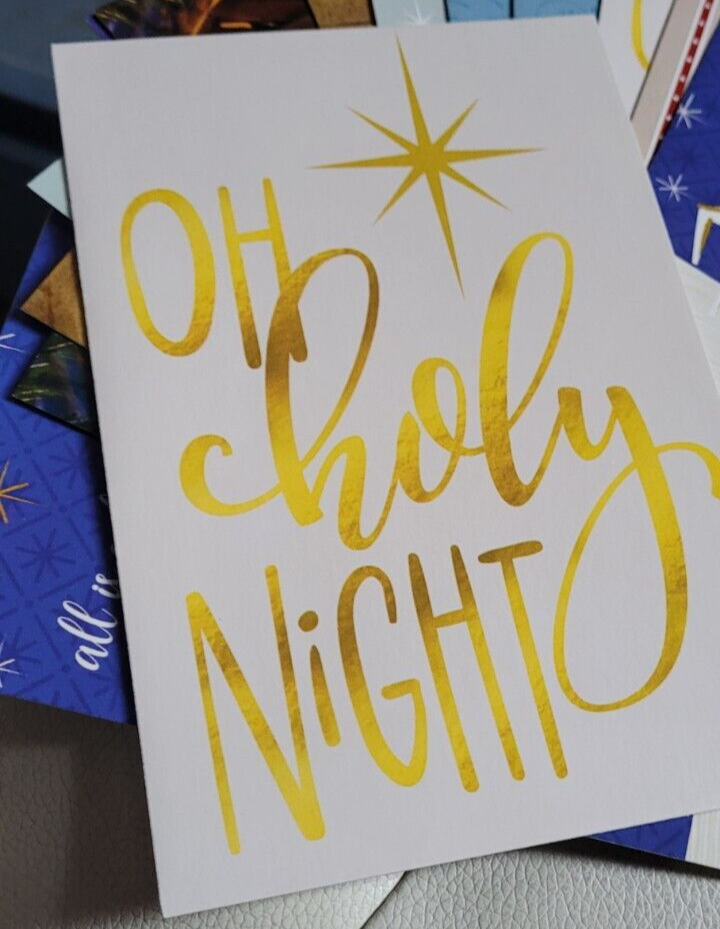 OH
holy
NiGHT
all is